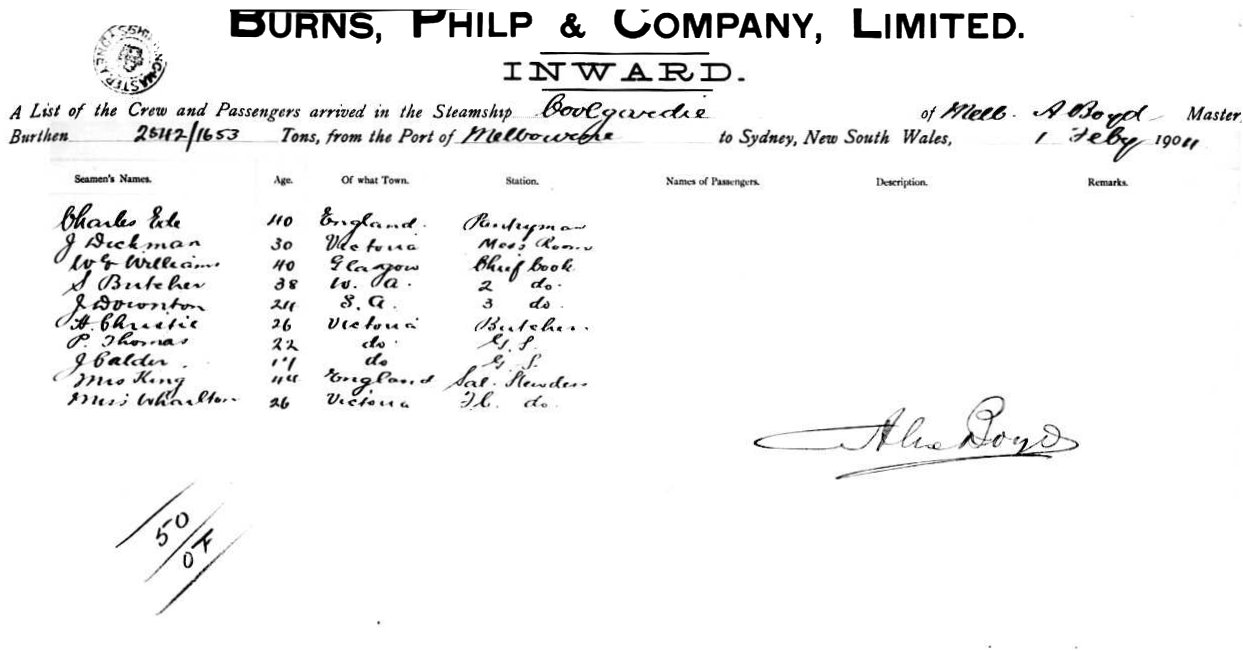 BURNS, PHILP & COMPANY, LIMITED.
INWARD.
A List of the Crew and Passengers arrived in the Steamship Coolgardie of Melb. A Boyd Master,
Burthen 2542/1653 Tons, from the Port of Melbourne to Sydney, New South Wales, 1 Feby 1904
Seamen's Names. Age. Of what Town. Station. Names of Passengers. Description. Remarks.
Charles 40 England. Pantryman
J Dickman 30 Victoria Mess Room
W G Williams 40 Glasgow Chief Cook
S Butcher 38 W. A. 2 do.
J Downton 24 S. A. 3 do.
A. Christie 26 Victoria Butcher.
P. Thomas 22 do. G. S.
J Calder. do G. S.
Mrs King 44 England Sal. Stewdess
Miss Wharlton 26 Victoria do.
Alex Boyd
50